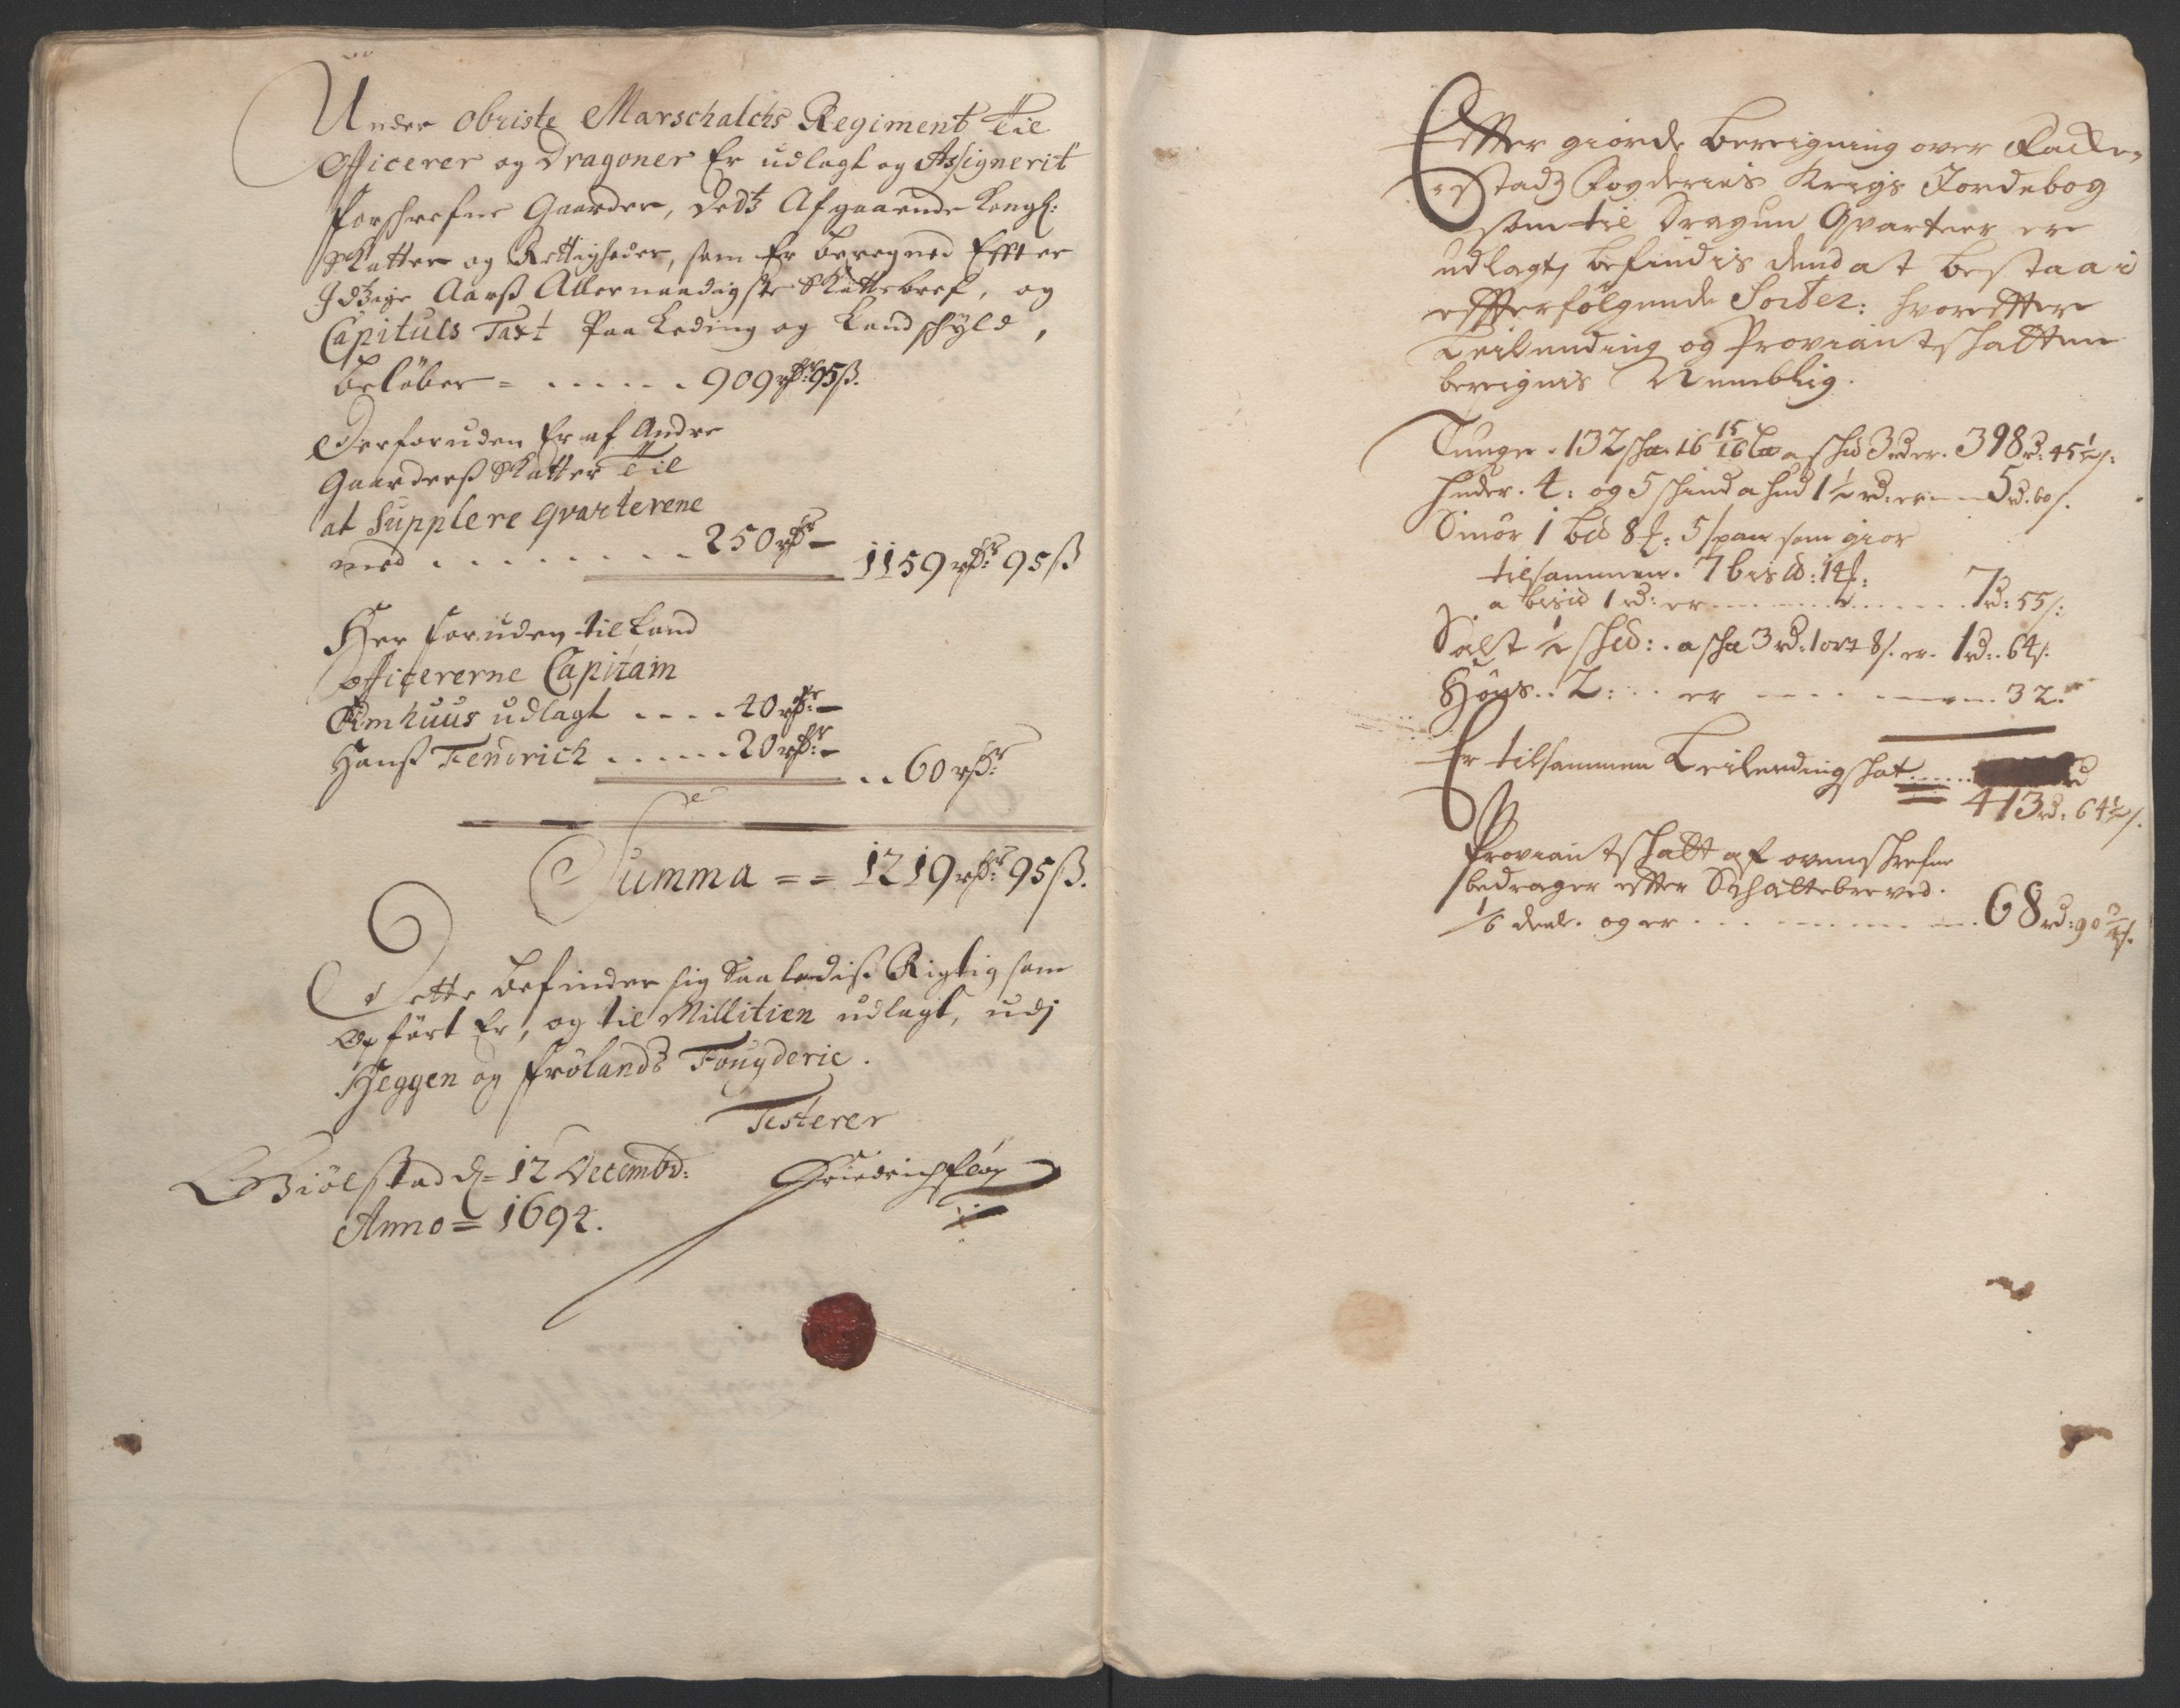 Under Obriste Marschalchs Regiment Til
Officerer og Dragoner Er udlagt og Assignerit
forschrefne Gaarder, Dedtz Afgaaende Kongl:
Skatter og Rettigheder, som Er beregned Effter
Idtzige Aarß Allernaadigste Skattebref, og
Capituls Taxt Paa Leding og Landschyld,
beløber = . . . . . . 909 rdr: 95 ß.
Derforuden Er af Andre
Gaarderß Skatter Til
at Supplere Qvarterene
med . . . . . . . . 250 rdr –
1159 rdr: 95 ß
Her foruden til Land
Officererne Capitain
Amhuus udlagt . . . . 40 rdr: –
Hanß Fendrich . . . . . 20 rdr: –
. . 60 rdr:
Summa = = 1219 rdr: 95 ß.
Dette befinder sig Saaledis Rigtig som
Opført Er, og til Millitien udlagt, udj
Heggen og Frølands Fougderie.
Testerer
Giølstad d= 12 Decembr:
Anno = 1694.
Friedrich
Effter giorde bereigning over Racke-
estadz Fogderies Krigs Jordebog
som til Dragun Qvarteer er
udlagt, befindis dend at bestaa i
effterfølgende Sorter: hvoreffter
Leilending og Proviantschatten
bereignis Nemblig.
Tunge . 132 15/16 a 3 rd er . 398 rd: 45 1/2 s:
huder . 4: og 5 schind a hud 1 1/2 rd: er – – 5 rd. 60 s.
Smør 1 8 5 span som giør
tilsammen . 7 14
a 1 rd: er . . . . . . 7 rd: 55 s:
Salt 1/2 : . a 3 rd: 1 ort 8 s. er . 1 rd: . 64 s.
Høns . . 2 : . . er . . . . . . 32.
Er tilsammen Leilendingschat . . . . . .
413 rd: 64 1/2 s.
Proviantschatt af ovenschrefne
bedrager effter Schattebreved .
1/6 deel . og er . . . . . . . 68 rd: 90 3/4 s.